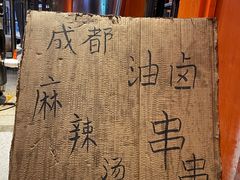 成都
油卤
麻辣
串串
汤